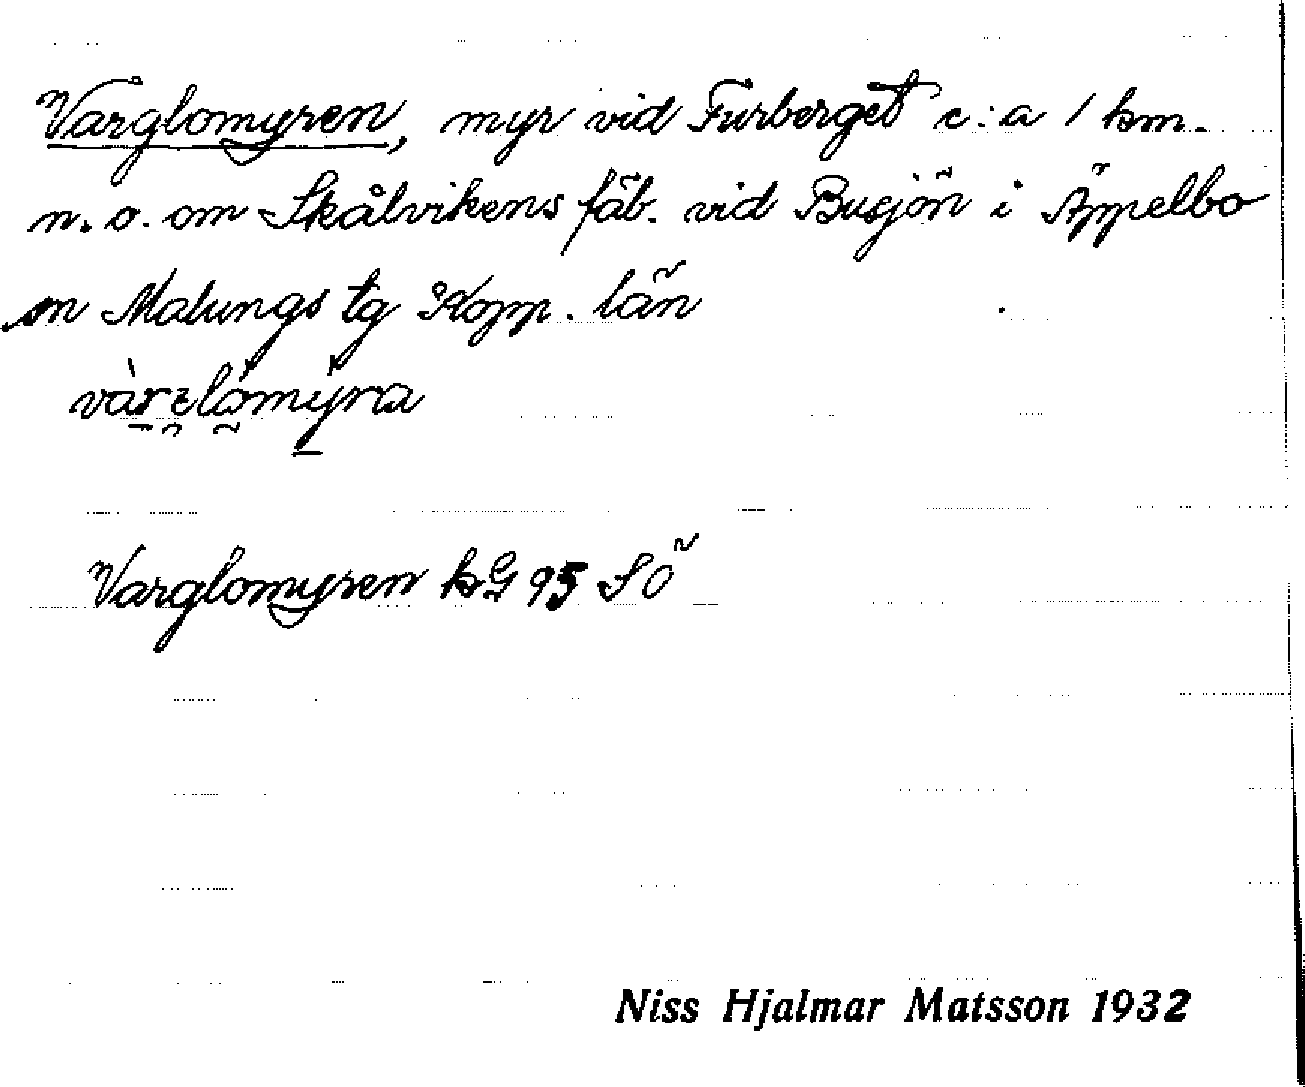 Varglomyren, myr vid Furberget c:a 1 km.
n. o. om Skålvikens fäb. vid Busjön i Äppelbo
sn Malungs tg Kopp. län
Varglomyren kG 95 SÖ
Niss Hjalmar Matsson 1932